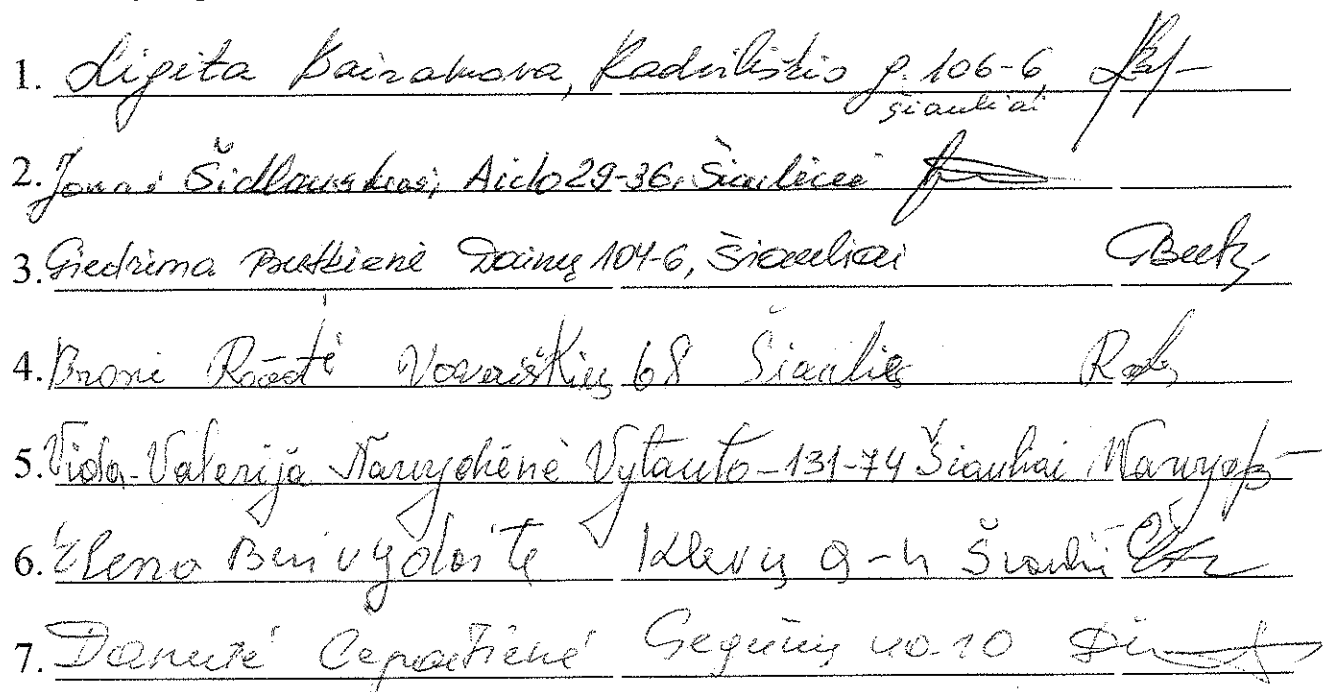 1. Ligita Bairakova, Radviliškio g. 106-6,
Šiauliai
2. Jonas Šidlauskas, Aido 29-36, Šiauliai
3. Giedrima Butkienė Dainų 104-6, Šiauliai
4. Bronė Vaveriškių 68 Šiaulių
5. Vida-Valerija Narvydienė Vytauto-131-74 Šiauliai
6. Elena Buivydaitė Klevų 9-4 Šiauliai
7. Danutė Gegužių 40-10